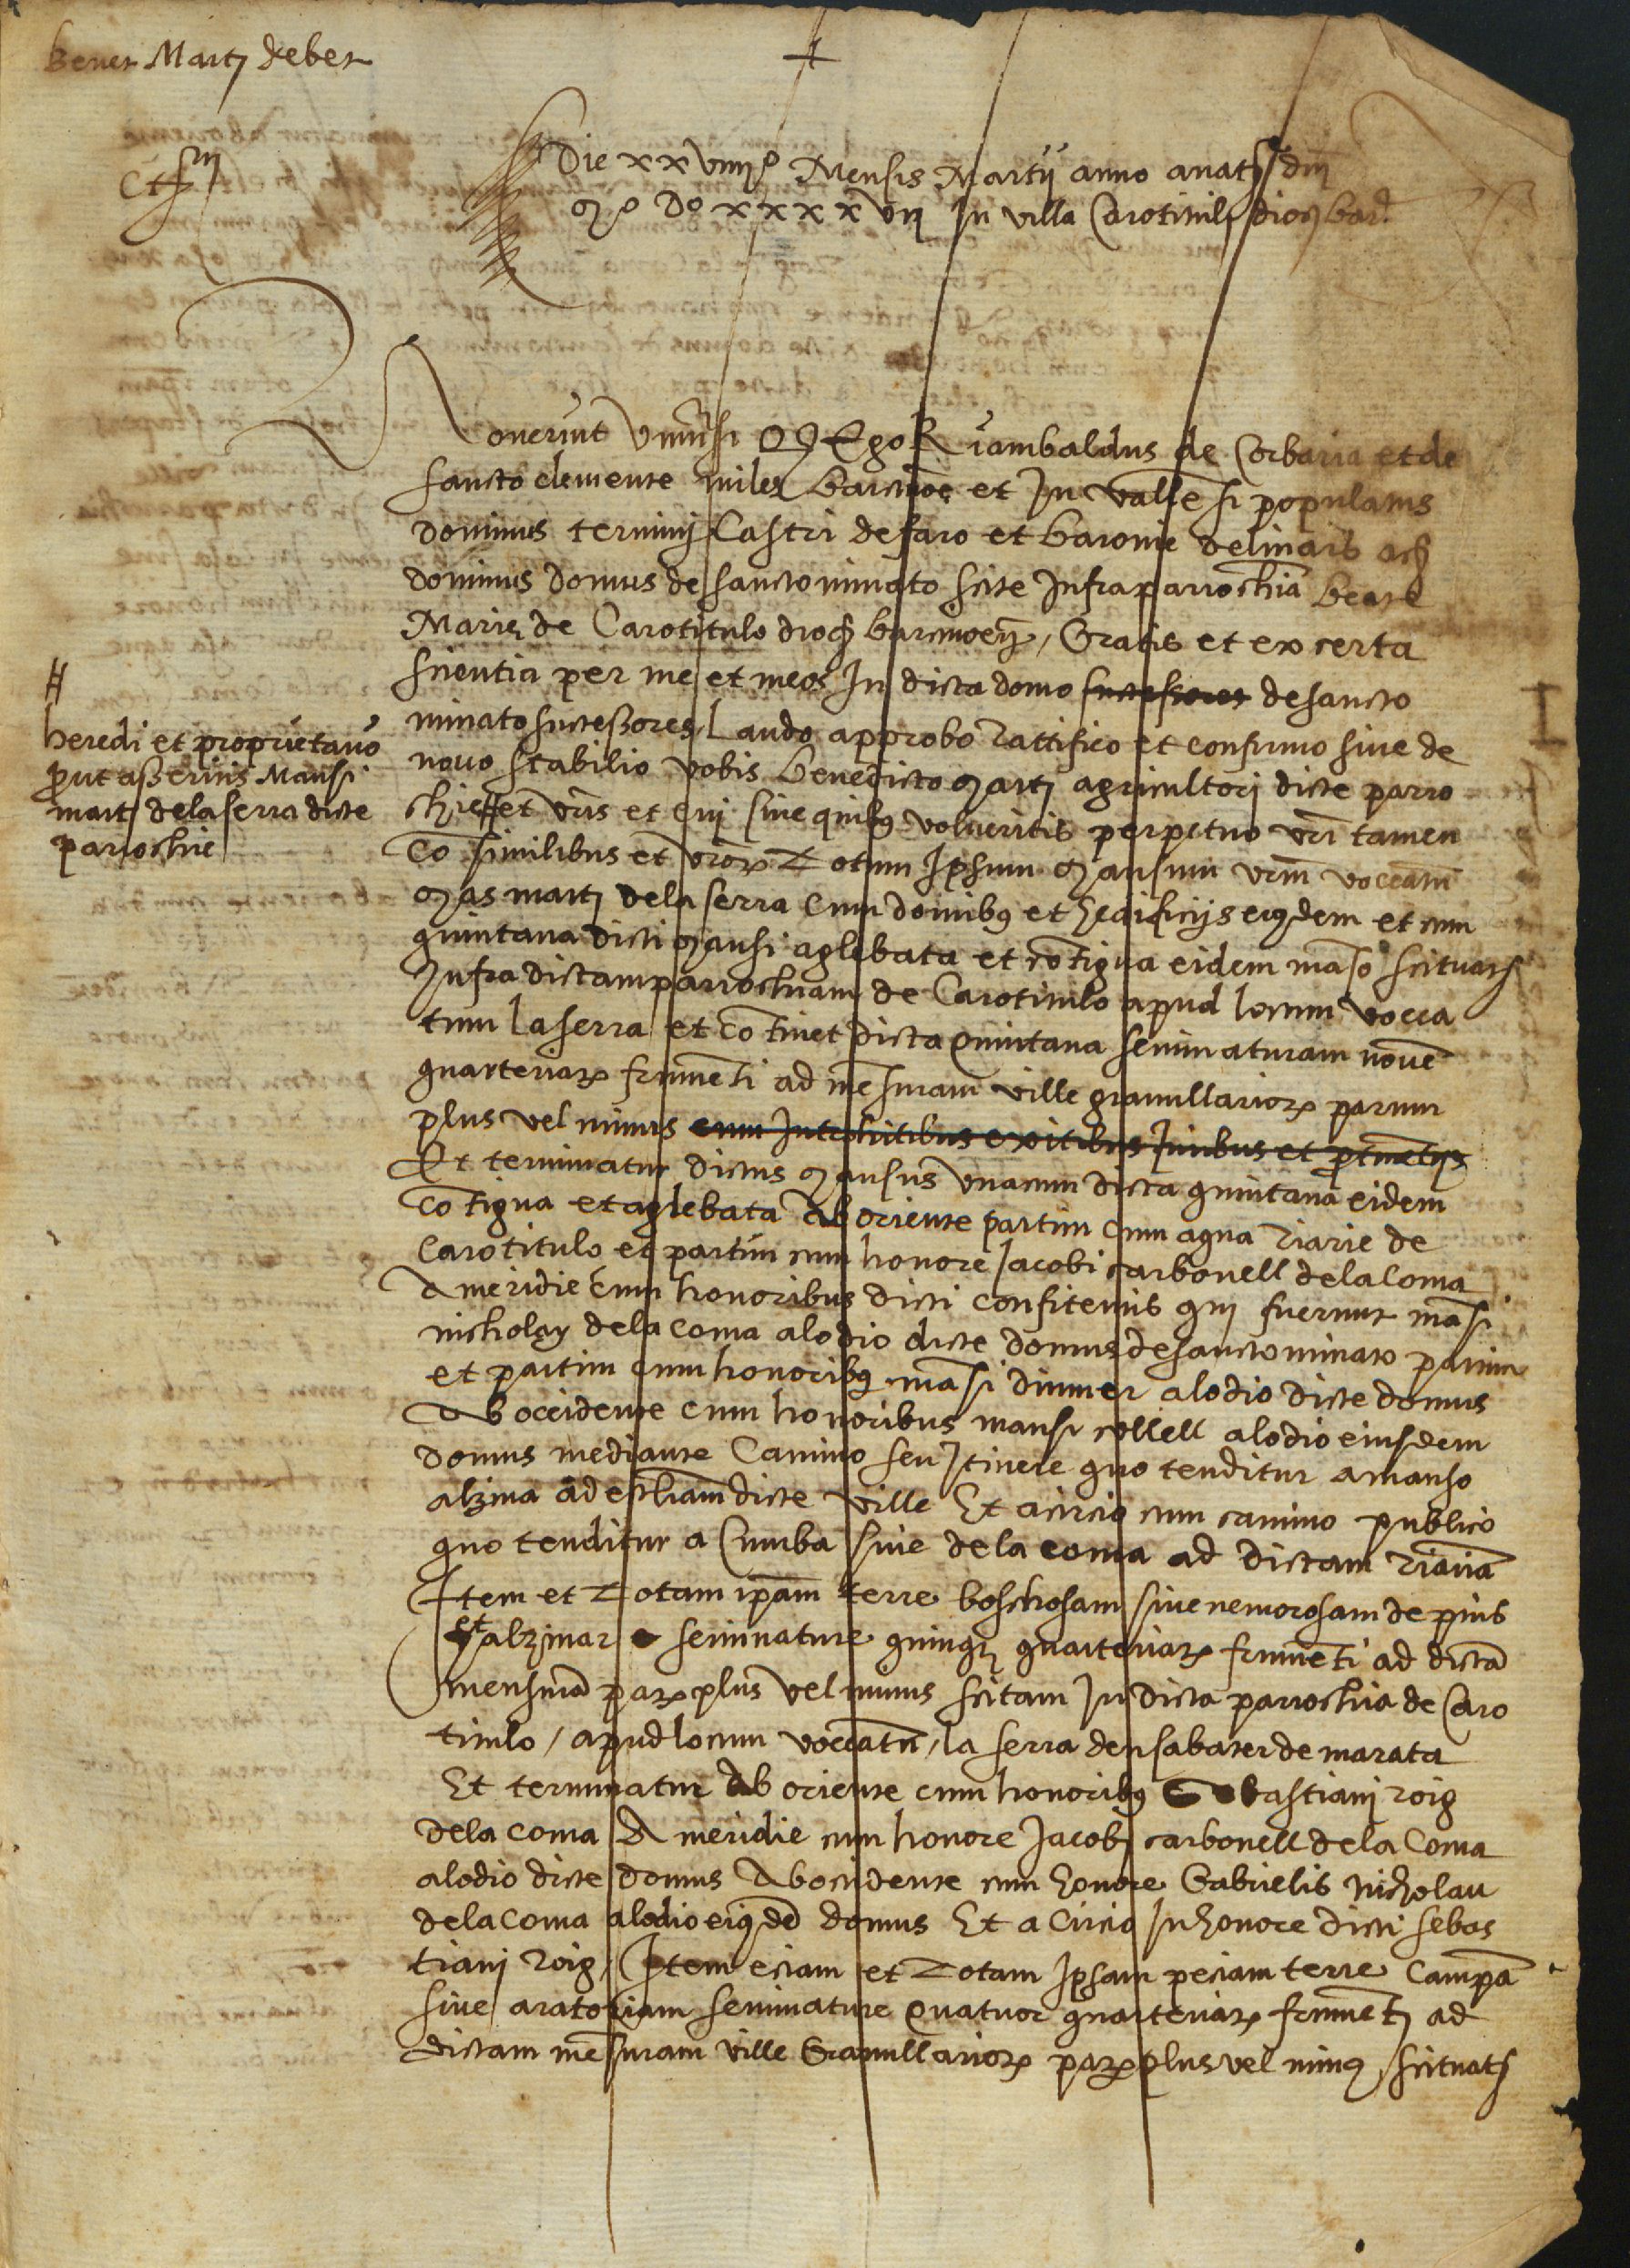 Benet Martj debet
Die xxviiijº Mensis Martij anno anatte dnj
Mº Dº xxxxvij In villa Carotitulj dioc barª
Noverint Vniuersi Q Ego Riambaldus de Corbaria et de
sancto clemente miles barcinoe et In vallesi populatus
dominus terminj Castri defaro et baronie delinars acq
dominus domus de sanctominato scite Infraparrochia beate
Marie de Carotitulo dioc barcinoen / Gratis et ex certa
scientia per me et meos In dicta domo successores desancto
minato successores, Laudo approbo Rattifico et confirmo siue de
nouo stabilio vobis benedicto Martj agricultorj dicte parro
chie # et vris et cuj siue quibus volueritis perpetuo vri tamen
Co similibus et vror Totum Ipsum Mansum vrm voccam
Mas martj dela serra Cum domibus et hedificijs eiusdem et cum
quintana dicti Mansi aglebata et cotigua eidem maso scituats
Infra dictam parrochiam de Carotitulo apud locum vocca
tum laserra et cotinet dicta Quintana seminaturam noue
quarteriar frumeti ad mesuram ville granullarior parum
plus vel minus cum Introhitibus exitibus Juribus et ptinetijs
Et terminatur dictus Mansus vnacum dicta quintana eidem
Cotigua et aglebata Ab oriente partim cum aqua Riarie de
Carotitulo et partim cum honore Jacobi carbonell delacoma
A meridie cum honoribus dicti confitentis quj fuerunt masi
nicholay dela coma alodio dicte domus desanctominato partim
et partim cum honoribus masi dinmer alodio dicte domus
Ab occidente cum honoribus mansi collell alodio eiusdem
domus mediante Camino seu Itinere quo tenditur amanso
alzina ad ecchiam dicte ville Et acircio cum camino publico
quo tenditur a Cumba siue de la coma ad dictam Riaria
Item et Totam ipam terre boschosam siue nemorosam de pins
et alzinar seminature quinq quarteriar frumeti ad dicta
mensura par plus vel minus scitam In dicta parrochia de Caro
titulo / apud locum voccatu / la serra den sabater de marata
Et terminatur Ab oriente cum honoribus Sebastianj roig
dela coma A meridie cum honore Jacobj carbonell dela Coma
alodio dicte domus Ab occidente cum honore Gabrielis nicholau
delacoma alodio eiusde domus Et a Circio In honore dicti sebas
tianj Roig / Item eciam et Totam Ipsam peciam terre Campa
siue aratoriam seminature Quatuor quarteriar frumetj ad
dictam mesuram ville Granullarior par plus vel minus scituats
#
heredi et proprietario
prout asseritis Mansi
martj delaserra dicte
parrochie